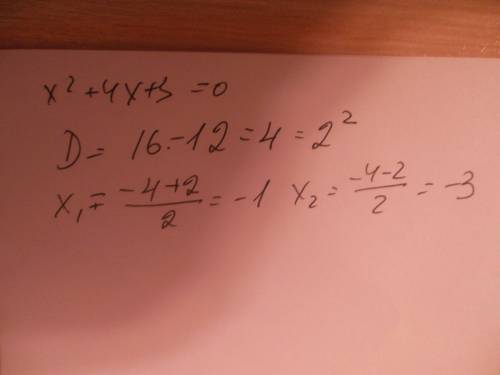 x²+4x+3=0
D= 16-12=4=2²
x₁= -4+2/2 = -1 x₂= -4-2/2 = -3